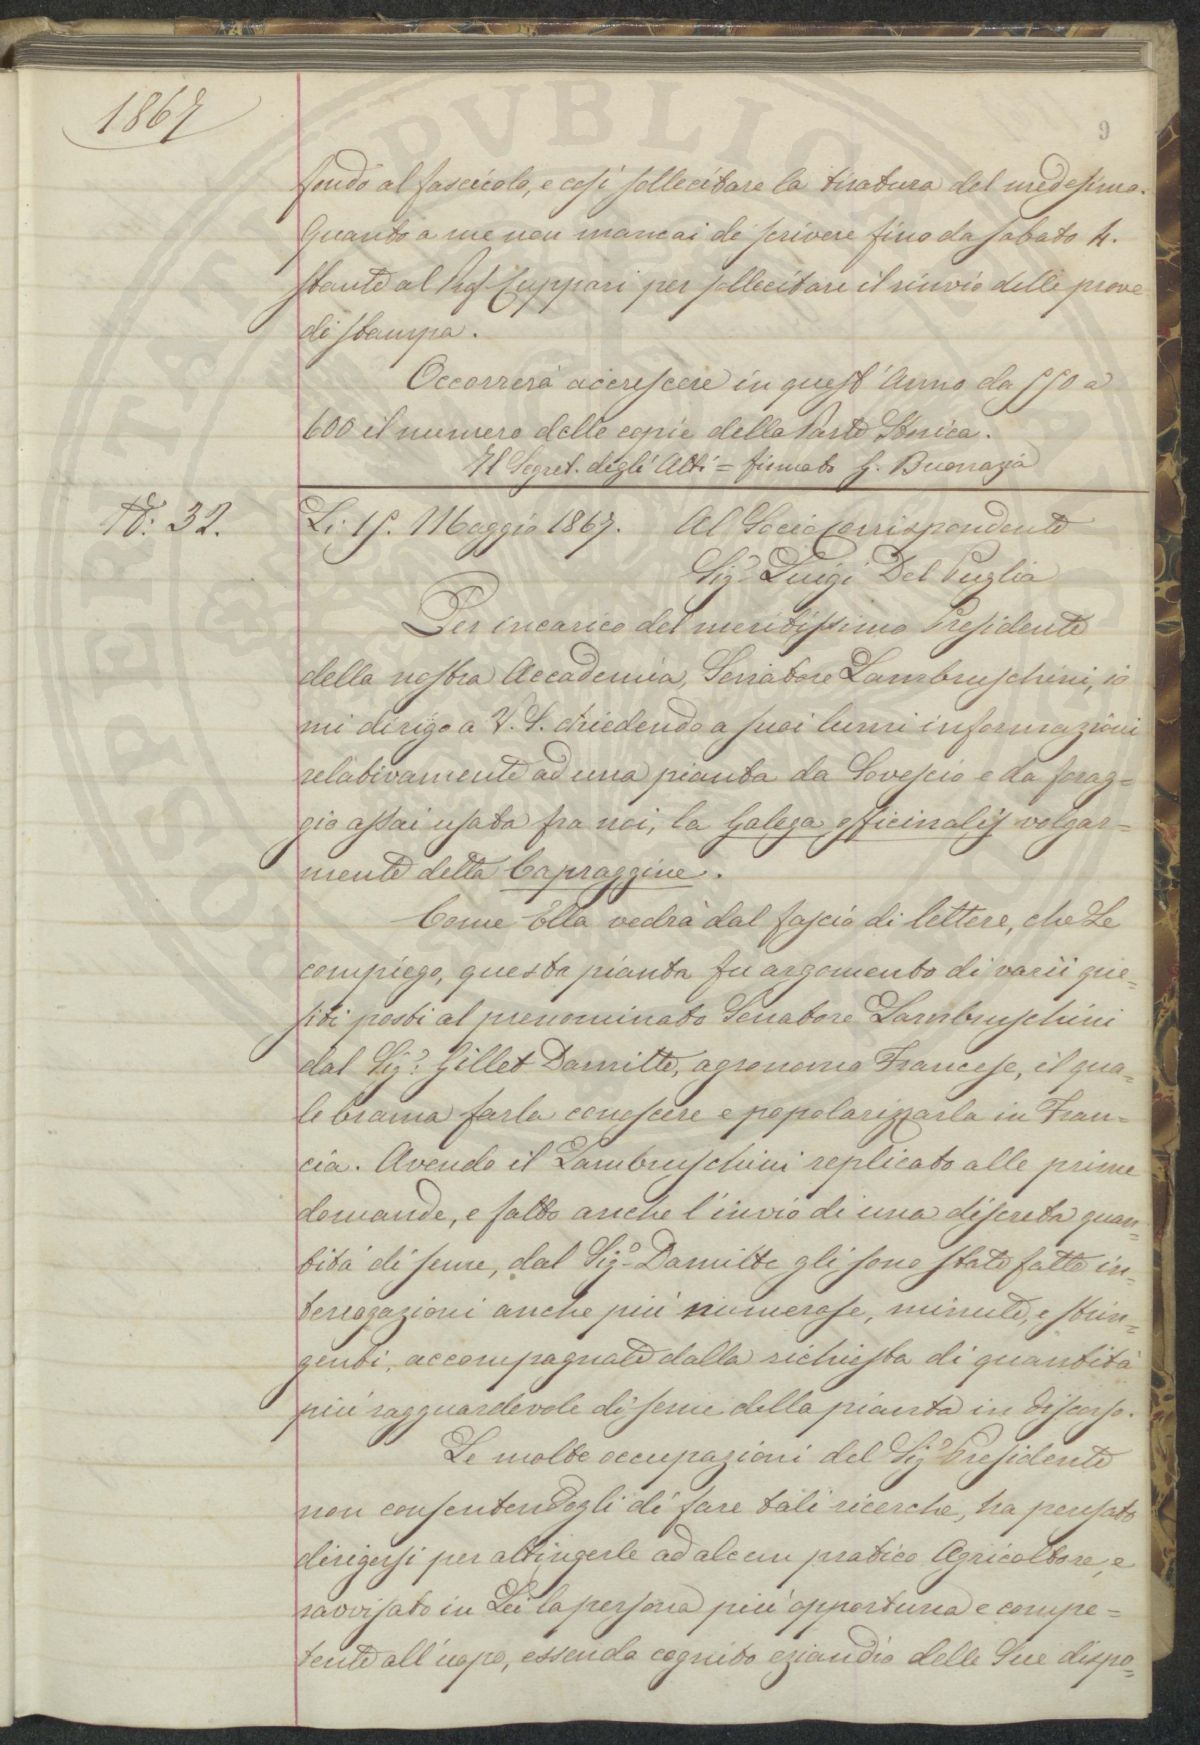 1867
9
fondo al fascicolo, e così sollecitare la tiratura del medesimo.
Quanto a me non mancai di scrivere fino da sabato 4.
stante al Prof. Cuppari per sollecitare il rinvio delle prove
di stampa.
Occorrerà accrescere in quest'Anno da 550 a
600 il numero delle copie della Parte Storica.
Il Segret. degli Atti = firmato G. Buonazia
N.° 32.
Li 15. Maggio 1867. Al Socio Corrispondente
Sig.r Luigi Del Puglia
Per incarico del meritissimo Presidente
della nostra Accademia, Senatore Lambruschini, io
mi dirigo a V. S. chiedendo a suoi lumi informazioni
relativamente ad una pianta da Sovescio e da forag=
gio assai usata fra noi, la Galega officinalis volgar=
mente detta Capraggine.
Come Ella vedrà dal fascio di lettere, che Le
compiego, questa pianta fu argomento di varii que=
siti posti al prenominato Senatore Lambruschini
dal Sig.r Gillet Damitte, agronomo Francese, il qua=
le brama farla conoscere e popolarizzarla in Fran=
cia. Avendo il Lambruschini replicato alle prime
domande, e fatto anche l'invio di una discreta quan=
tità di seme, dal Sig.r Damitte gli sono state fatte in=
terrogazioni anche più numerose, minute, e strin=
genti, accompagnate dalla richiesta di quantità
più ragguardevole di seme della pianta in discorso.
Le molte occupazioni del Sig.r Presidente
non consentendogli di fare tali ricerche, ha pensato
dirigersi per attingerle ad alcun pratico Agricoltore, e
ravvisato in Lei la persona più opportuna e compe=
tente all'uopo, essendo cognito eziandio delle Sue dispo=